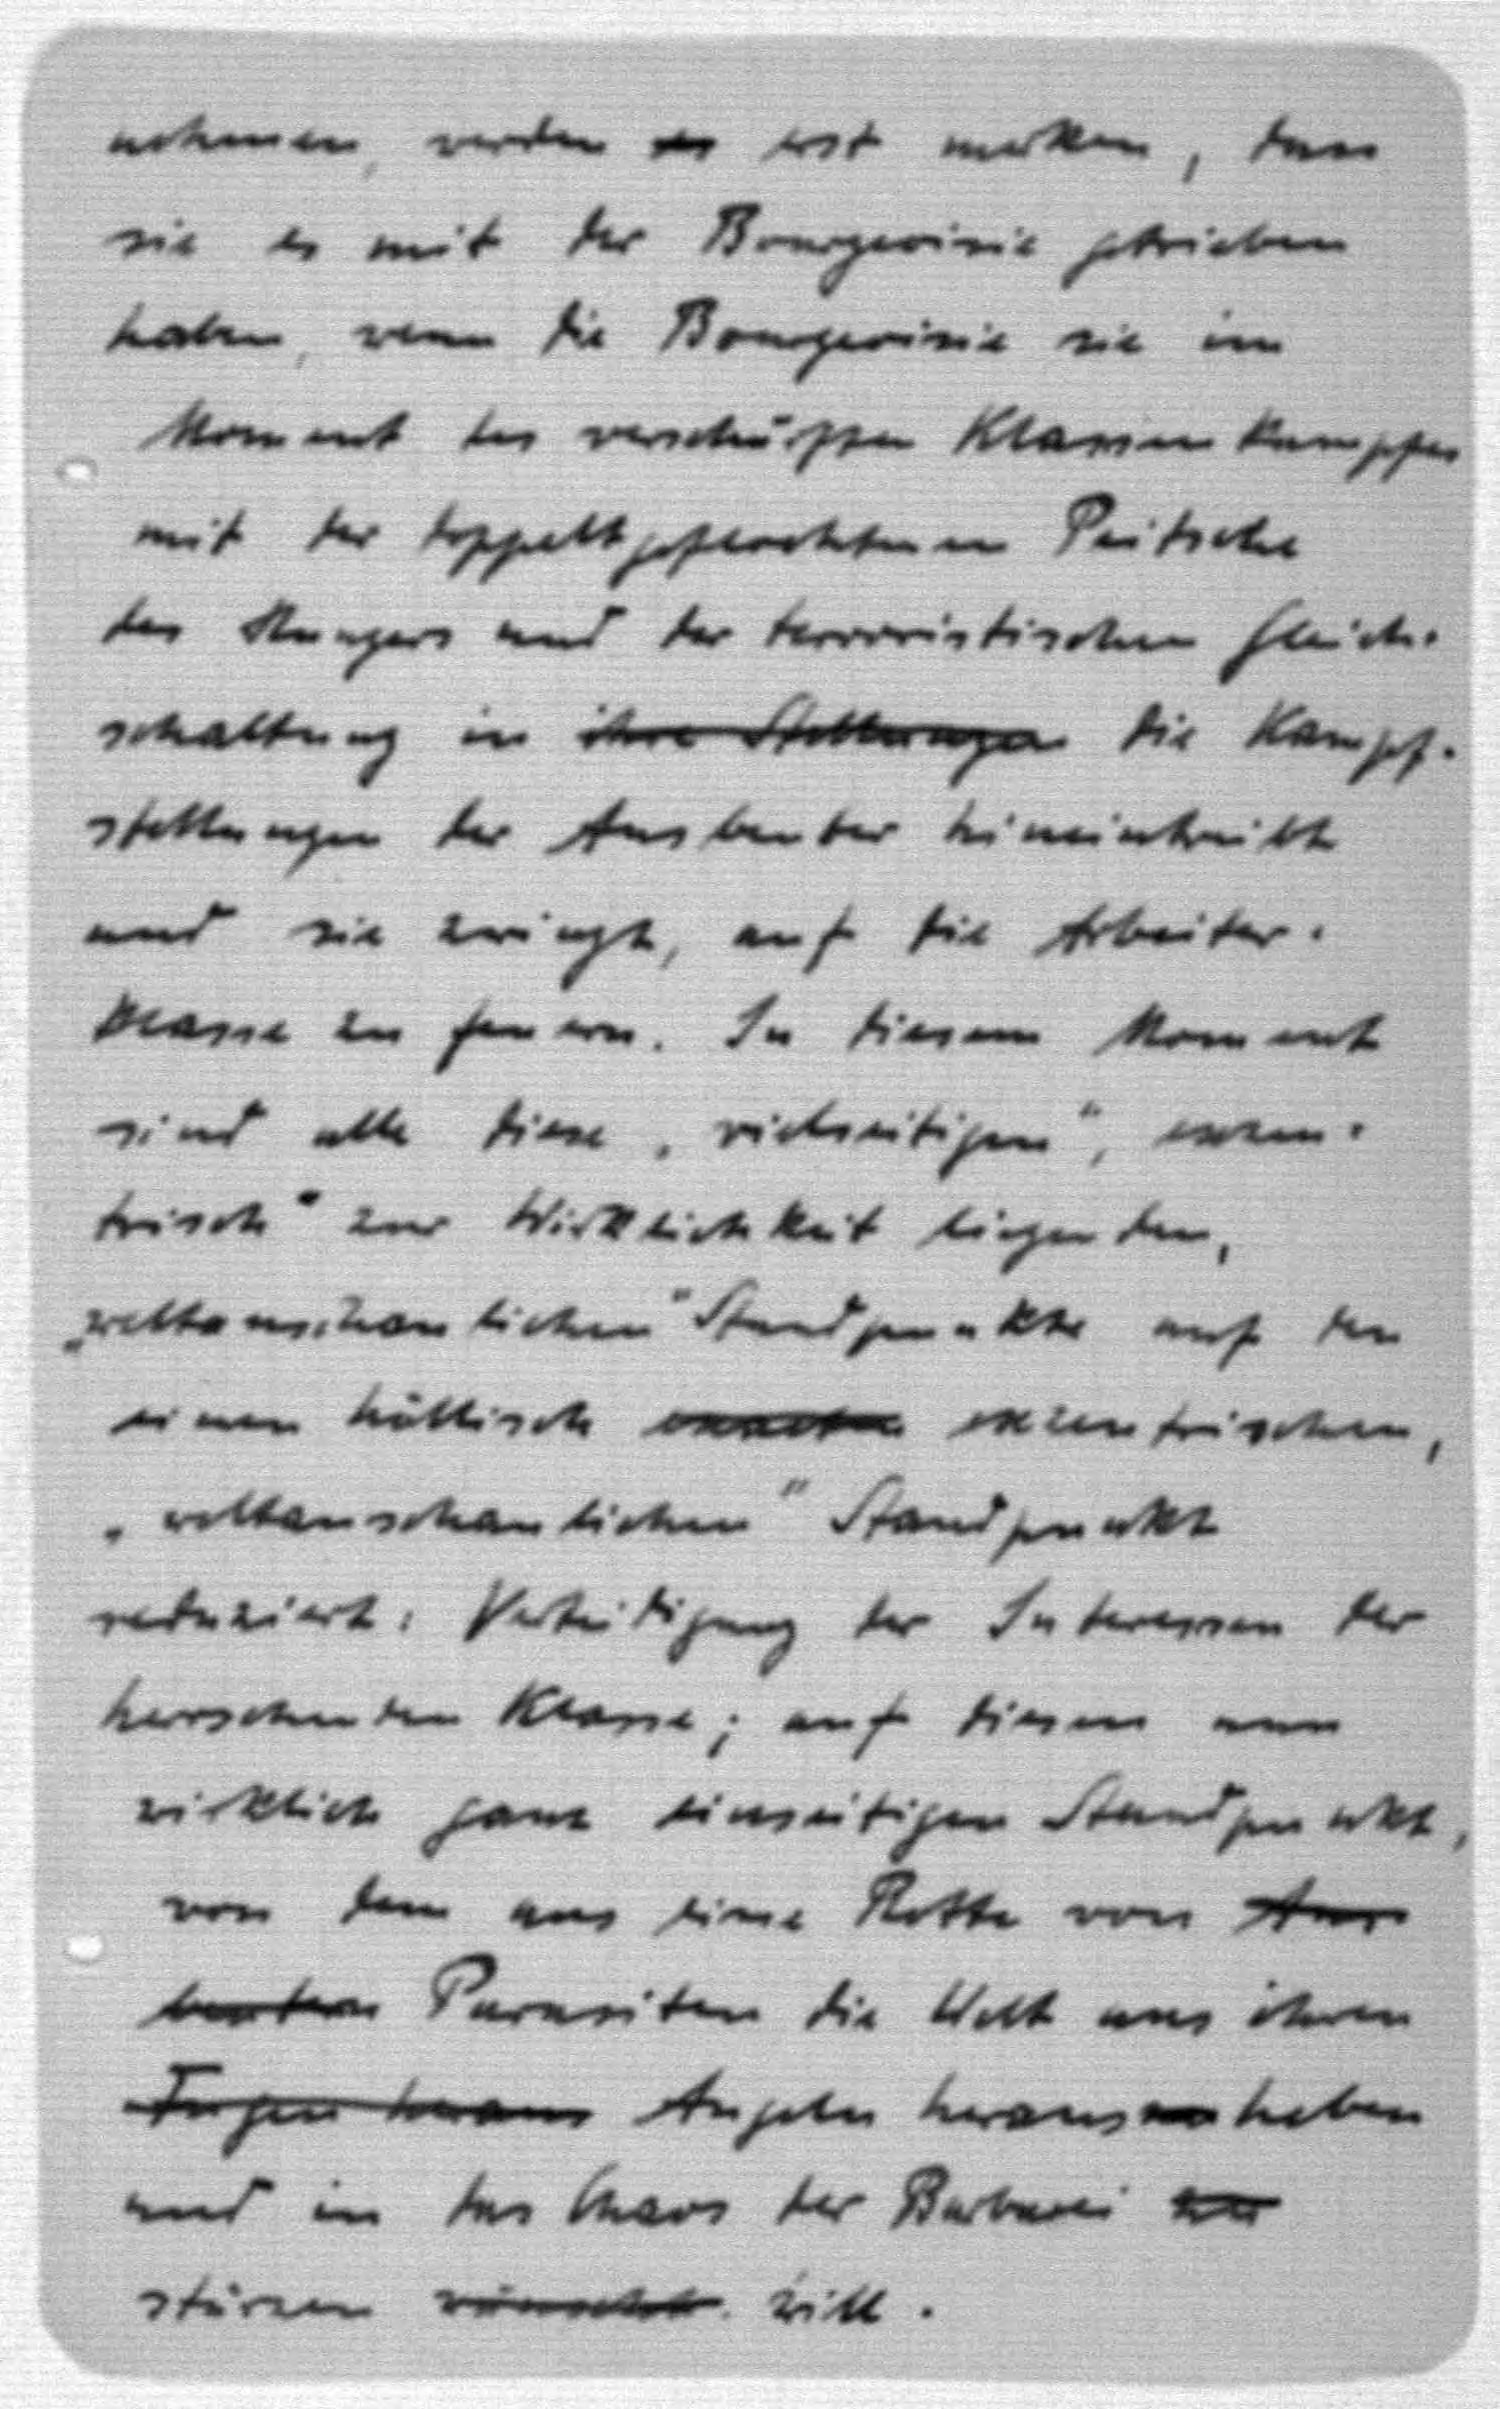 nehmen, werden ~~es~~ erst merken, dass
sie es mit der Bourgeoisie getrieben
haben, wenn die Bourgeoisie sie im
Moment des verschärften Klassenkampfes
mit der doppeltgeflochtenen Peitsche
des Hungers und der terroristischen Gleich-
schaltung in ~~ihre Stellungen~~ die Kampf-
stellungen der Ausbeuter hineintreibt
und sie zwingt, auf die Arbeiter-
klasse zu feuern. In diesem Moment
sind alle diese „vielseitigen“, exzen-
trisch“ zur Wirklichkeit liegenden,
„weltanschaulichen“ Standpunkte auf den
einen höllisch exzentrischen,
„weltanschaulichen“ Standpunkt
reduziert: Verteidigung der Interessen der
herrschenden Klasse; auf diesen nun
wirklich ganz einseitigen Standpunkt,
von dem aus eine Rotte von ~~Aus-~~
~~beutern~~ Parasiten die Welt aus ihren
~~Fugen heraus~~ Angeln herausheben
und in das Chaos der Barbarei
stürzen ~~wünscht.~~ will.